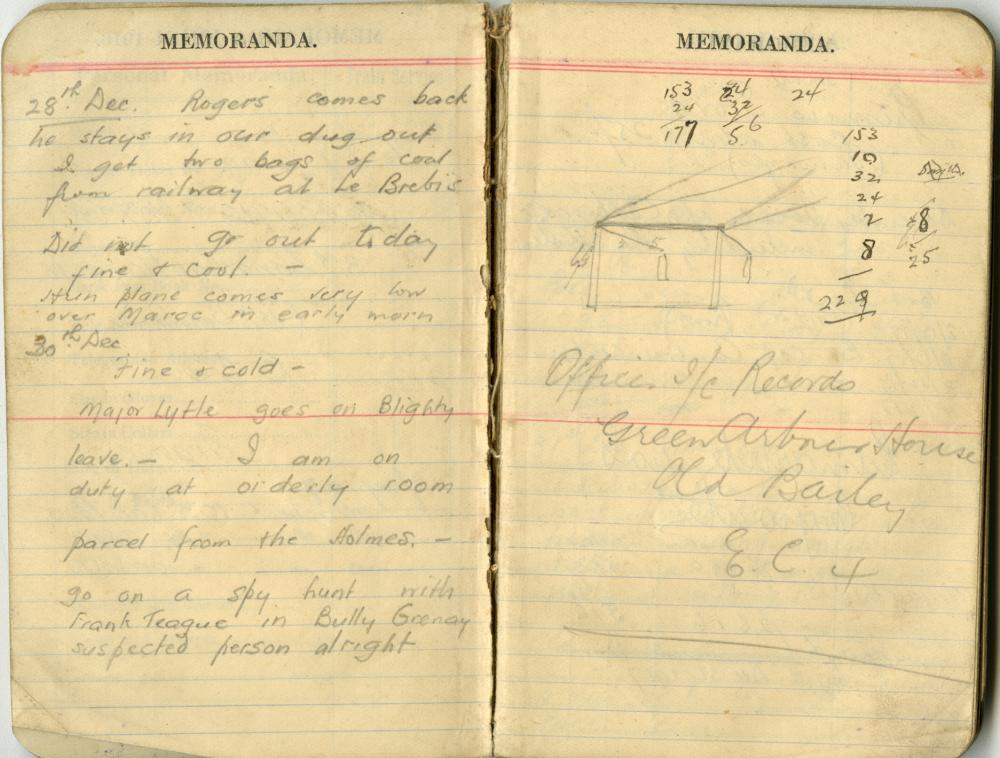 MEMORANDA.
28th Dec. Rogers comes back
he stays in our dug out
I get two bags of coal
from railway at Le Brebis
Did not go out today
fine & cool. -
Hun plane comes very low
over Maroc in early morn
30th Dec
Fine & cold -
Major Lytle goes on Blighty
leave. - I am on
duty at orderly room
parcel from the Holmes. -
go on a spy hunt with
Frank Teague in Bully Grenay
suspected person alright
MEMORANDA.
153 24 24
24 32
177 56
153
10
32
24
2 8
8 25
229
Officer I/c Records
Green Arbour House
Old Bailey
E.C. 4